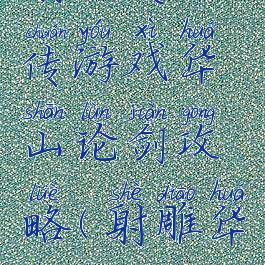 chuán yóu xì huá
传游戏华
shān lùn jiàn gōng
山论剑攻
lüè shè diāo huá
略(射雕华